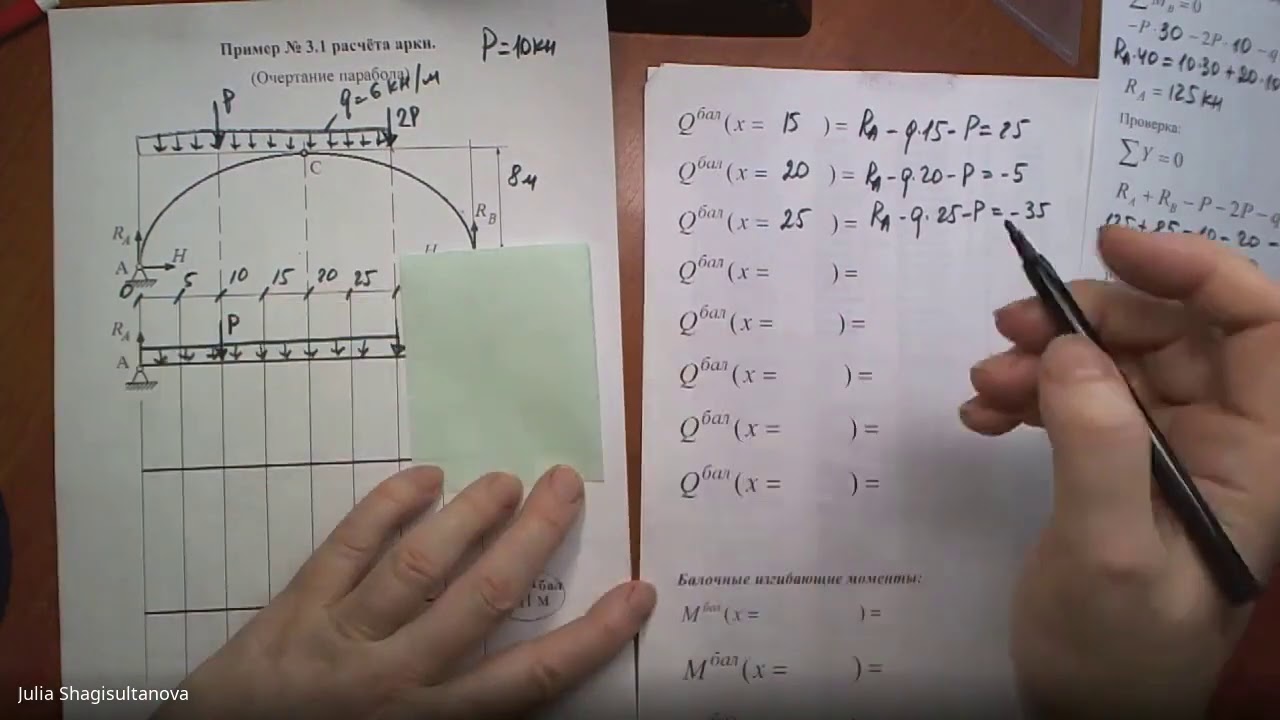 Пример № 3.1 расчёта арки.
(Очертание парабола)
P = 10 кн
q = 6 кн/м
P
2P
C
8 м
R_A
R_B
A
H
H
0 5 10 15 20 25
R_A
P
A
бал
M
Q^бал (x = 15 ) = R_A - q·15 - P = 25
Q^бал (x = 20 ) = R_A - q·20 - P = -5
Q^бал (x = 25 ) = R_A - q·25 - P = -35
Q^бал (x = ) =
Q^бал (x = ) =
Q^бал (x = ) =
Q^бал (x = ) =
Q^бал (x = ) =
Балочные изгибающие моменты:
M^бал (x = ) =
M^бал (x = ) =
∑M_B = 0
-P·30 - 2P·10 - q
R_A·40 = 10·30 + 20·10
R_A = 125 кн
Проверка:
∑Y = 0
R_A + R_B - P - 2P - q
125 + 85 - 10 - 20 -
Julia Shagisultanova